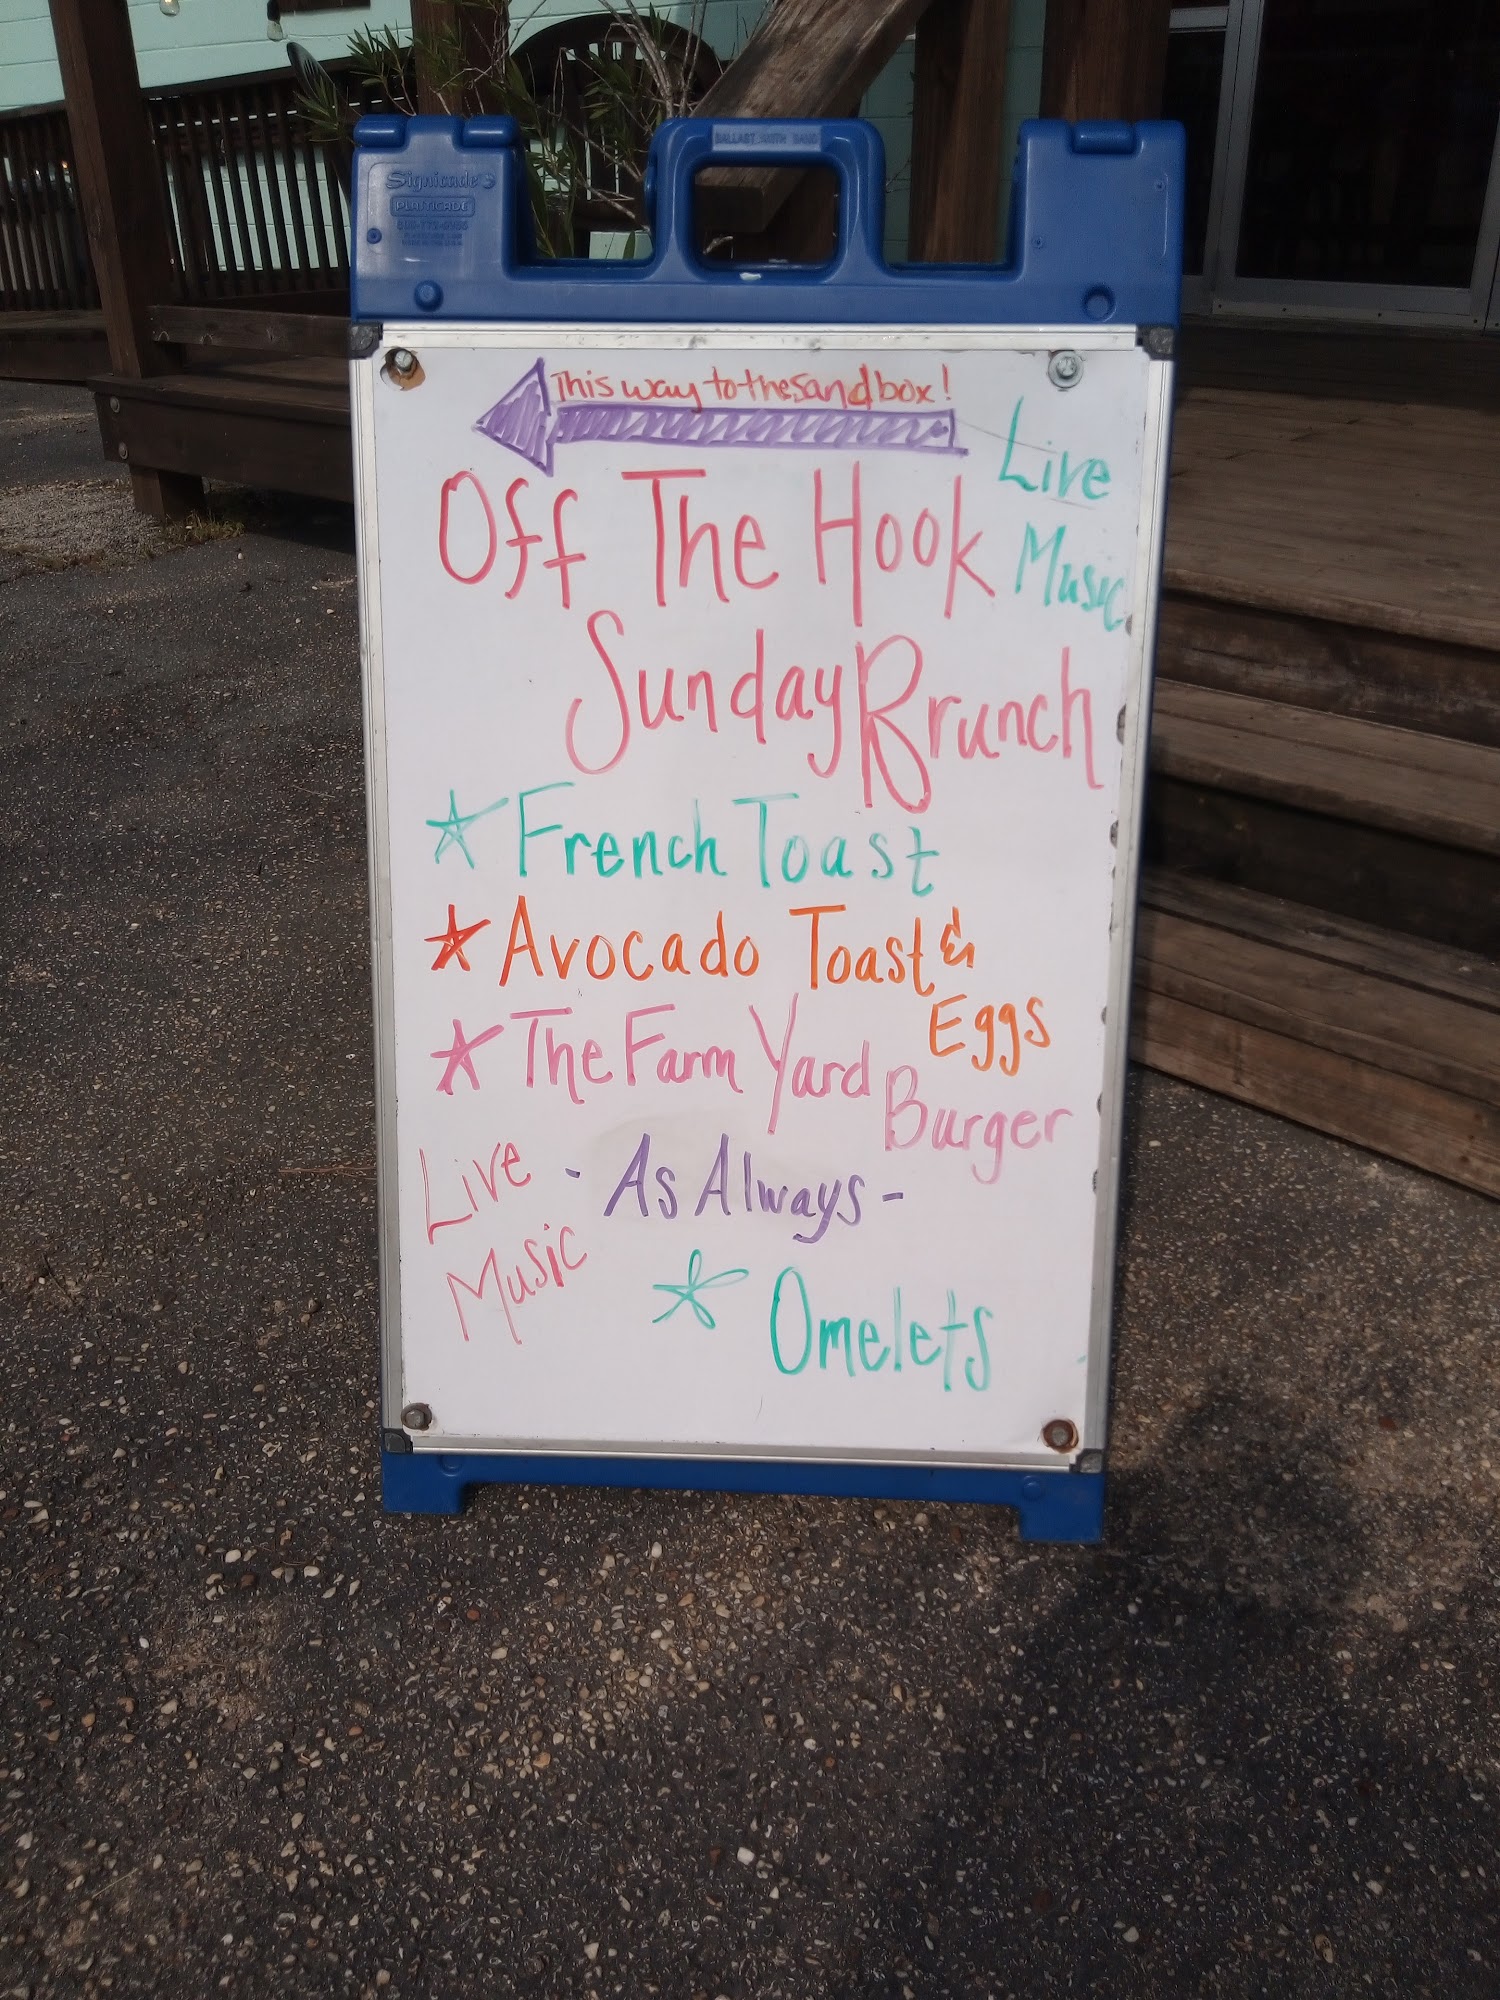 BALLAST WITH SAND
Signicade
PLASTICADE
This way to the sandbox!
Live
Music
Off The Hook
Sunday Brunch
French Toast
Avocado Toast &
Eggs
The Farm Yard
Burger
Live
Music
- As Always -
Omelets